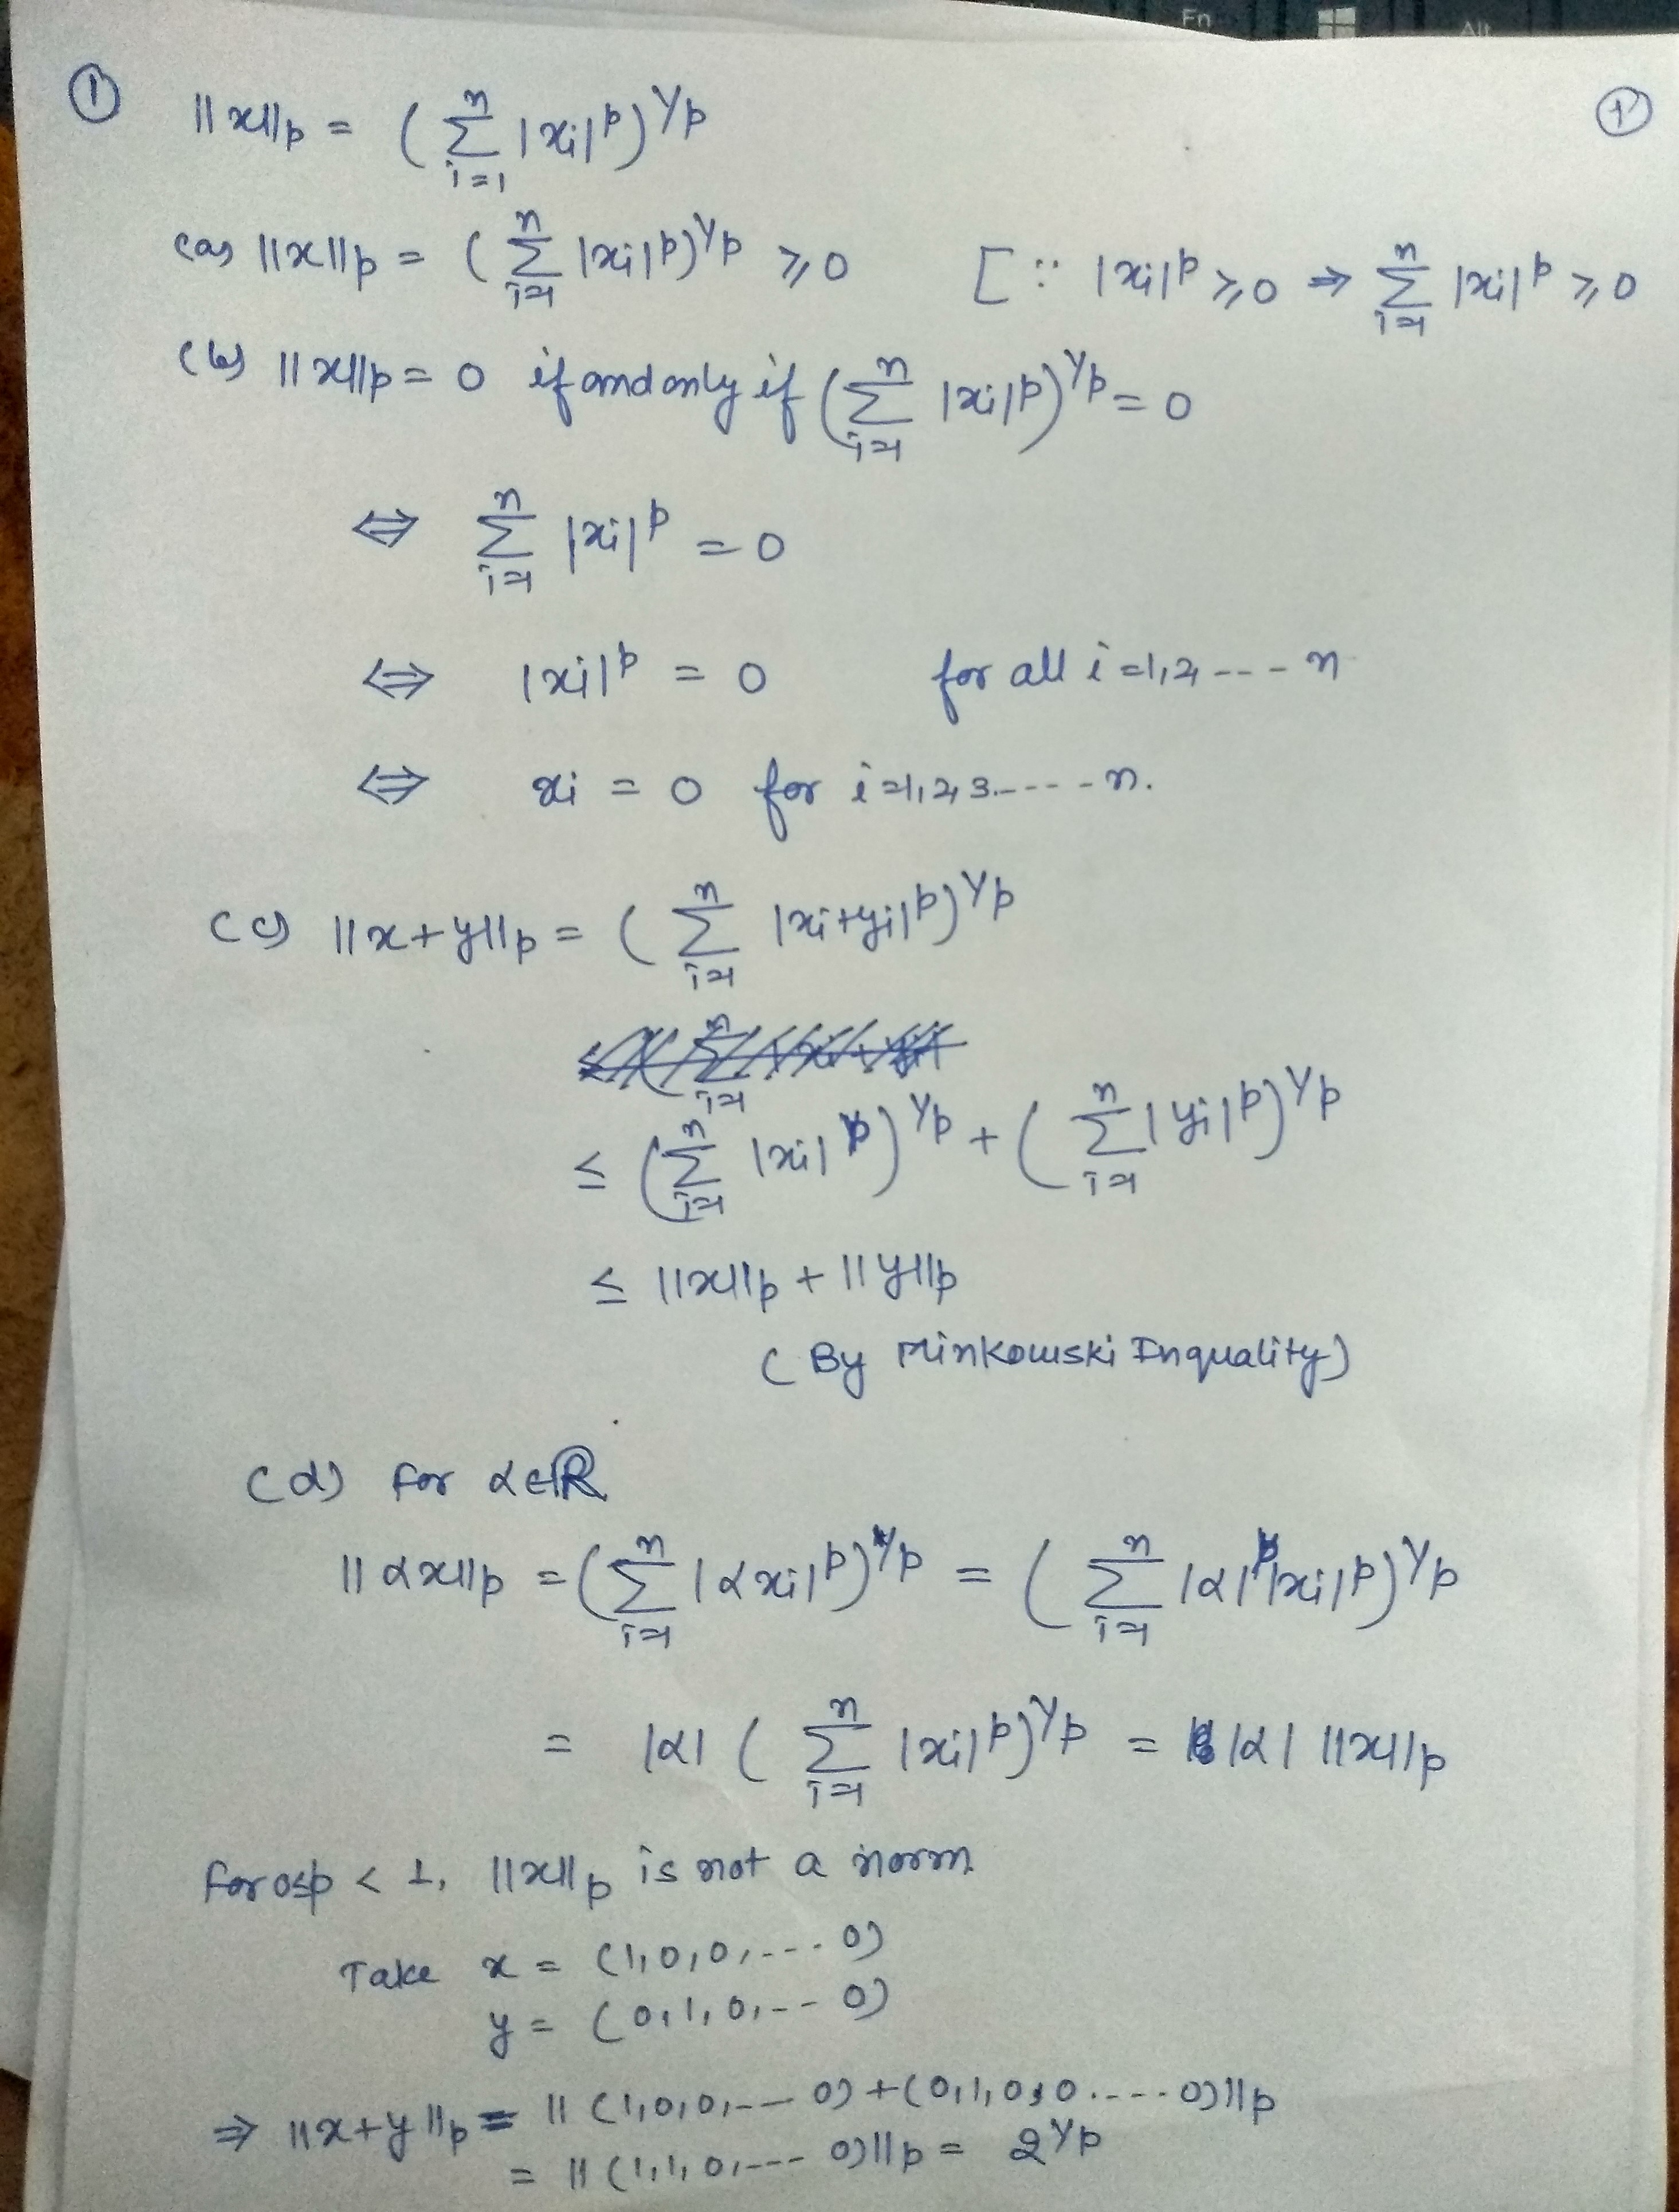 Fn Alt
① ||x||p = ( n Σ i=1 |xi|^p )^1/p ①
(a) ||x||p = ( n Σ i=1 |xi|^p )^1/p ≥ 0 [ ∵ |xi|^p ≥ 0 ⇒ n Σ i=1 |xi|^p ≥ 0
(b) ||x||p = 0 if and only if ( n Σ i=1 |xi|^p )^1/p = 0
⇔ n Σ i=1 |xi|^p = 0
⇔ |xi|^p = 0 for all i=1,2,---n
⇔ xi = 0 for i=1,2,3.----n.
(c) ||x+y||p = ( n Σ i=1 |xi+yi|^p )^1/p
≤ ( n Σ i=1 |xi|^p )^1/p + ( n Σ i=1 |yi|^p )^1/p
≤ ||x||p + ||y||p
( By Minkowski Inquality)
(d) For α∈ℝ
||αx||p = ( n Σ i=1 |αxi|^p )^1/p = ( n Σ i=1 |α|^p |xi|^p )^1/p
= |α| ( n Σ i=1 |xi|^p )^1/p = |α| ||x||p
For 0≤p < 1, ||x||p is not a norm
Take x = (1,0,0,---.0)
y = (0,1,0,--0)
⇒ ||x+y||p = ||(1,0,0,---0)+(0,1,0,0.----0)||p
= ||(1,1,0,---0)||p = 2^1/p